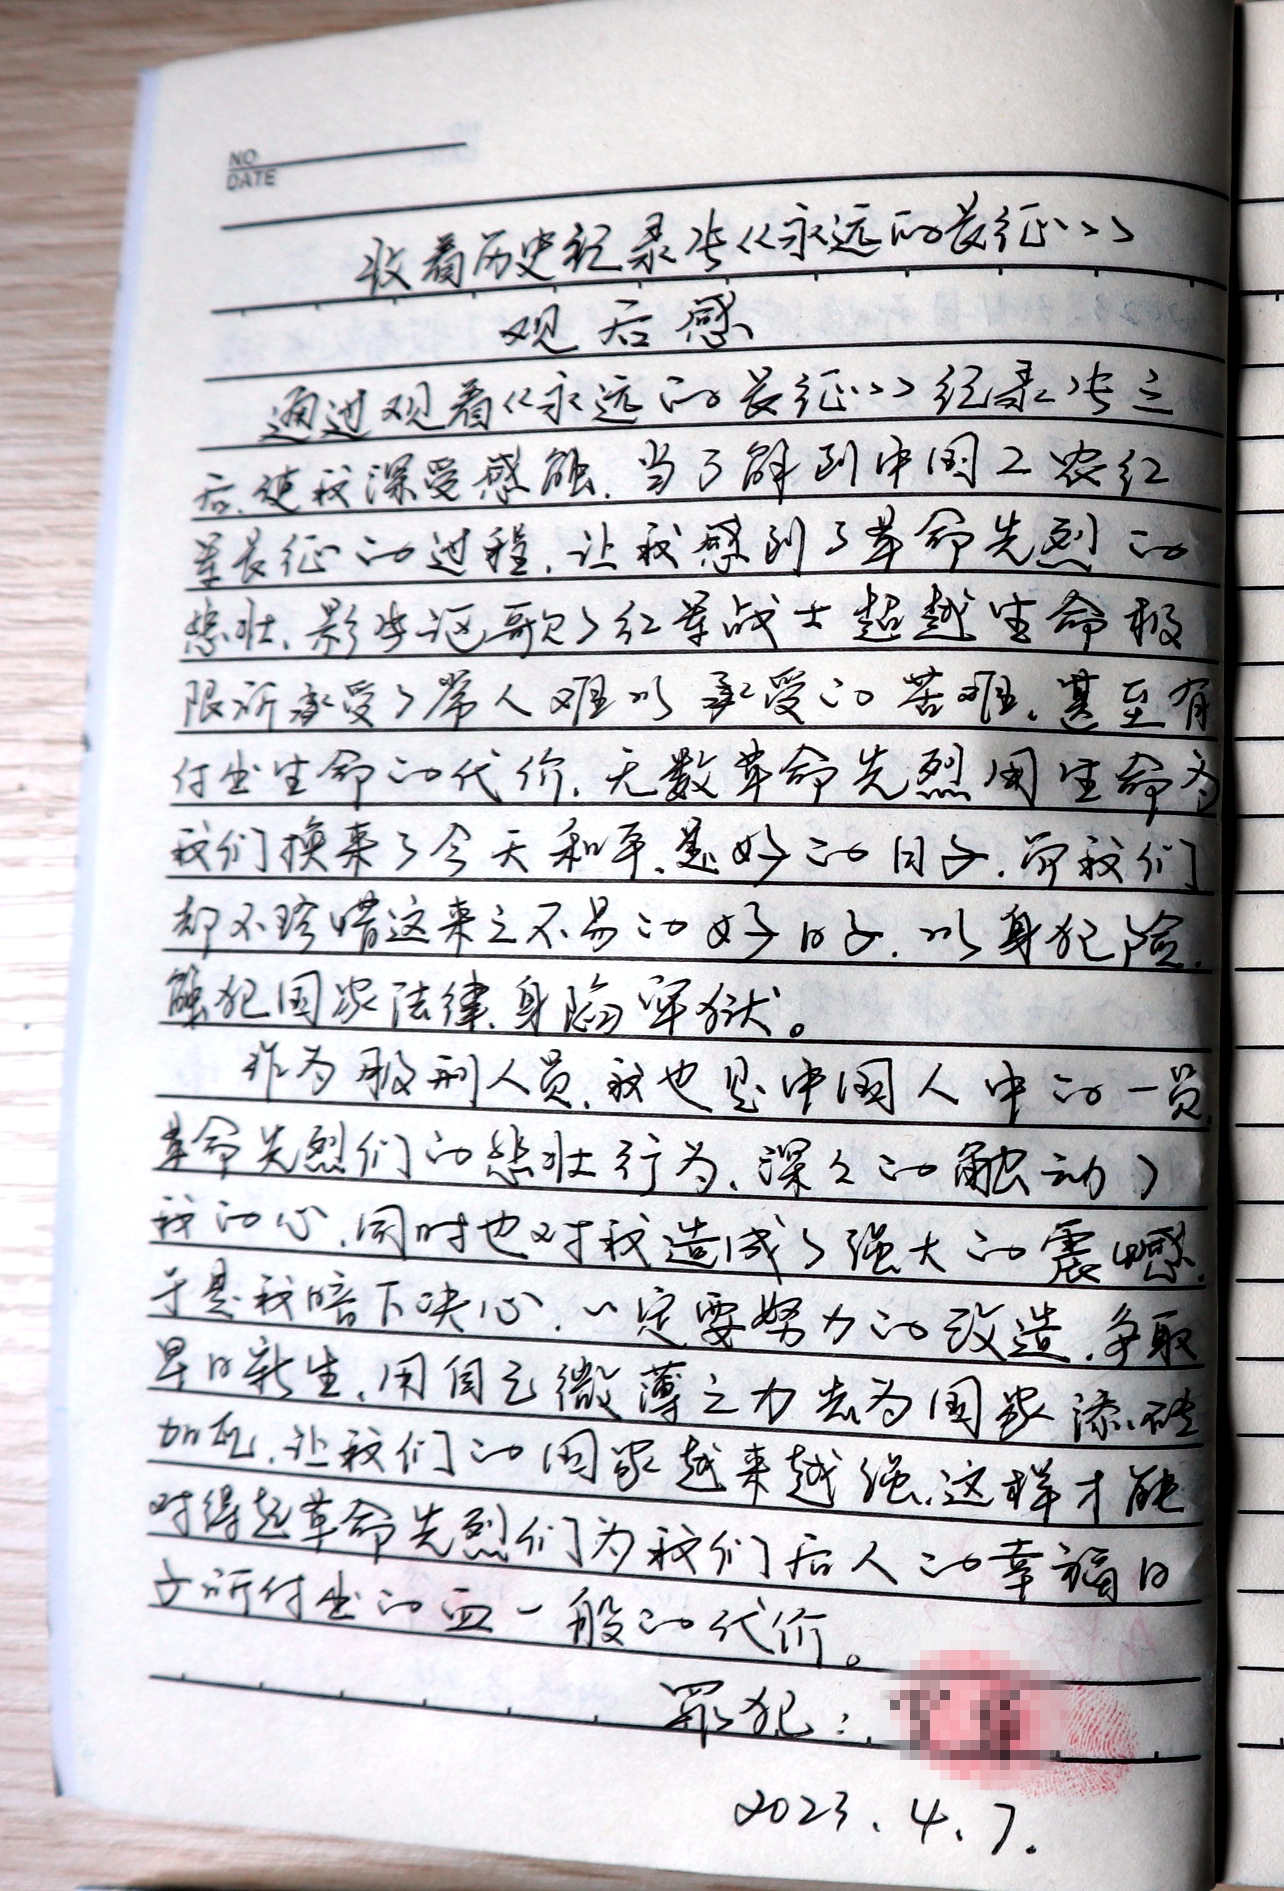 NO
DATE
收看历史纪录片《永远的长征》
观后感
通过观看《永远的长征》纪录片之
后,使我深受感触,当了解到中国工农红
军长征的过程,让我感到了革命先烈的
悲壮,影片讴歌了红军战士超越生命极
限所承受了常人难以承受的苦难,甚至有
付出生命的代价,无数革命先烈用生命为
我们换来了今天和平、美好的日子,而我们
却不珍惜这来之不易的好日子,以身犯险,
触犯国家法律,身陷牢狱。
作为服刑人员,我也是中国人中的一员,
革命先烈们的悲壮行为,深久的触动了
我的心,同时也对我造成了强大的震憾,
于是我暗下决心,一定要努力的改造,争取
早日新生,用自己微薄之力去为国家添砖
加瓦,让我们的国家越来越强,这样才能
对得起革命先烈们为我们后人的幸福日
子所付出的血一般的代价。
罪犯:
2023.4.7.